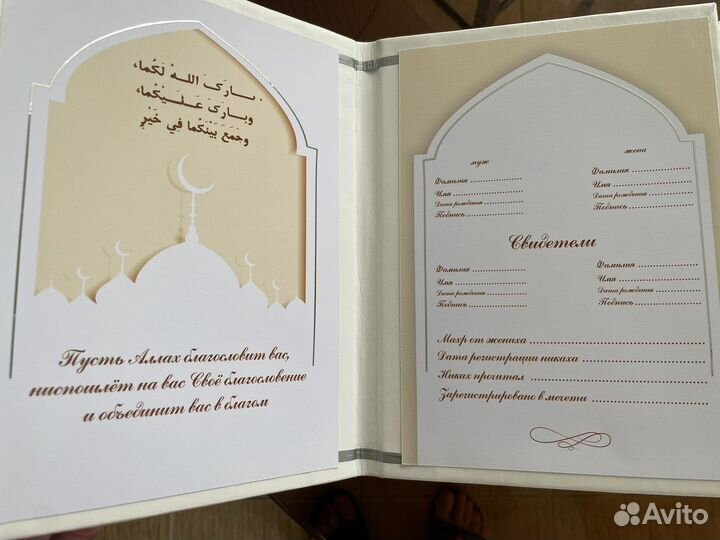 بَارَكَ اللهُ لَكُمَا،
وبارَكَ عَلَيْكُمَا،
وجَمَعَ بَيْنَكُما في خَيْرٍ
Пусть Аллах благословит вас,
ниспошлёт на вас Своё благословение
и объединит вас в благом
муж жена
Фамилия Фамилия
Имя Имя
Дата рождения Дата рождения
Подпись Подпись
Свидетели
Фамилия Фамилия
Имя Имя
Дата рождения Дата рождения
Подпись Подпись
Махр от жениха
Дата регистрации никаха
Никах прочитал
Зарегистрировано в мечети
Avito